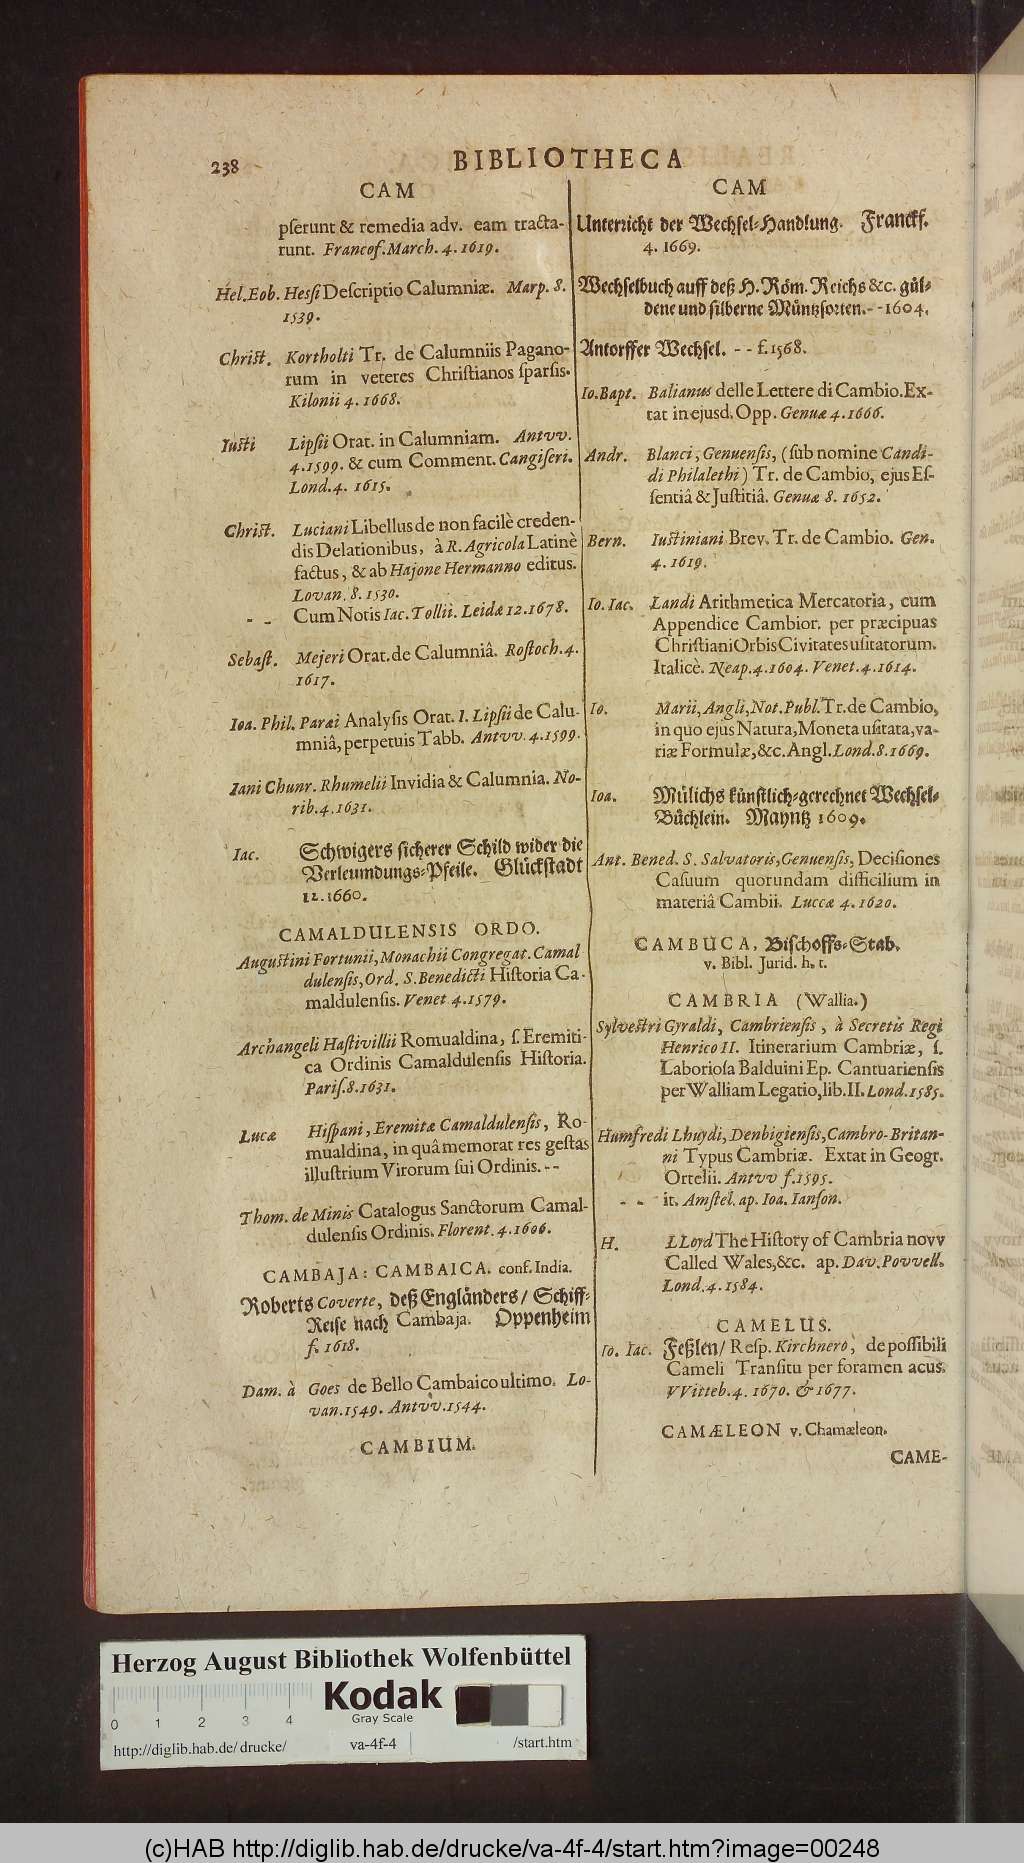 238
BIBLIOTHECA
CAM
pſerunt & remedia adv. eam tracta-
runt. Francof. March. 4. 1619.
Hel. Eob. Hesſi Deſcriptio Calumniæ. Marp. 8.
1539.
Chriſt. Kortholti Tr. de Calumniis Pagano-
rum in veteres Chriſtianos ſparſis.
Kilonii 4. 1668.
Iuſti Lipſii Orat. in Calumniam. Antvv.
4. 1599. & cum Comment. Cangiſeri.
Lond. 4. 1615.
Chriſt. Luciani Libellus de non facilè creden-
dis Delationibus, à R. Agricola Latinè
factus, & ab Hajone Hermanno editus.
Lovan. 8. 1530.
- - Cum Notis Iac. Tollii. Leidæ 12. 1678.
Sebaſt. Mejeri Orat. de Calumniâ. Roſtoch. 4.
1617.
Ioa. Phil. Paræi Analyſis Orat. I. Lipſii de Calu-
mniâ, perpetuis Tabb. Antvv. 4. 1599.
Iani Chunr. Rhumelii Invidia & Calumnia. No-
rib. 4. 1631.
Iac. Schwigers ſicherer Schild wider die
Verleumdungs-Pfeile. Glückſtadt
12. 1660.
CAMALDULENSIS ORDO.
Auguſtini Fortunii, Monachii Congregat. Camal
dulenſis, Ord. S. Benedicti Hiſtoria Ca-
maldulenſis. Venet 4. 1579.
Archangeli Haſtivillii Romualdina, ſ. Eremiti-
ca Ordinis Camaldulenſis Hiſtoria.
Pariſ. 8. 1631.
Lucæ Hiſpani, Eremitæ Camaldulenſis, Ro-
mualdina, in quâ memorat res geſtas
illuſtrium Virorum ſui Ordinis. - -
Thom. de Minis Catalogus Sanctorum Camal-
dulenſis Ordinis. Florent. 4. 1606.
CAMBAJA: CAMBAICA. conf. India.
Roberts Coverte, deß Engländers/ Schiff-
Reiſe nach Cambaja. Oppenheim
f. 1618.
Dam. à Goes de Bello Cambaico ultimo. Lo-
van. 1549. Antvv. 1544.
CAMBIUM.
CAM
Unterricht der Wechſel-Handlung. Franckf.
4. 1669.
Wechſelbuch auff deß H. Röm. Reichs &c. gül-
dene und ſilberne Müntzſorten. - - 1604.
Antorffer Wechſel. - - f. 1568.
Io. Bapt. Balianus delle Lettere di Cambio. Ex-
tat in ejusd. Opp. Genuæ 4. 1666.
Andr. Blanci, Genuenſis, (ſub nomine Candi-
di Philalethi) Tr. de Cambio, ejus Eſ-
ſentiâ & Juſtitiâ. Genuæ 8. 1652.
Bern. Iuſtiniani Brev. Tr. de Cambio. Gen.
4. 1619.
Io. Iac. Landi Arithmetica Mercatoria, cum
Appendice Cambior. per præcipuas
Chriſtiani Orbis Civitates uſitatorum.
Italicè. Neap. 4. 1604. Venet. 4. 1614.
Io. Marii, Angli, Not. Publ. Tr. de Cambio,
in quo ejus Natura, Moneta uſitata, va-
riæ Formulæ, &c. Angl. Lond. 8. 1669.
Ioa. Mülichs künſtlich-gerechnet Wechſel-
Büchlein. Mayntz 1609.
Ant. Bened. S. Salvatoris, Genuenſis, Deciſiones
Caſuum quorundam difficilium in
materiâ Cambii. Luccæ 4. 1620.
CAMBUCA, Biſchoffs-Stab.
v. Bibl. Jurid. h. t.
CAMBRIA (Wallia.)
Sylveſtri Gyraldi, Cambrienſis, à Secretis Regi
Henrico II. Itinerarium Cambriæ, ſ.
Laborioſa Balduini Ep. Cantuarienſis
per Walliam Legatio, lib. II. Lond. 1585.
Humfredi Lhuydi, Denbigienſis, Cambro-Britan-
ni Typus Cambriæ. Extat in Geogr.
Ortelii. Antvv f. 1595.
- - it. Amſtel. ap. Ioa. Ianſon.
H. LLoyd The Hiſtory of Cambria novv
Called Wales, &c. ap. Dav. Povvell.
Lond. 4. 1584.
CAMELUS.
Io. Iac. Feßlen/ Reſp. Kirchnero, de poſſibili
Cameli Tranſitu per foramen acus.
VVitteb. 4. 1670. & 1677.
CAMÆLEON v. Chamæleon.
CAME-
Herzog August Bibliothek Wolfenbüttel
Kodak
Gray Scale
0 1 2 3 4
http://diglib.hab.de/drucke/ va-4f-4 /start.htm
(c)HAB http://diglib.hab.de/drucke/va-4f-4/start.htm?image=00248